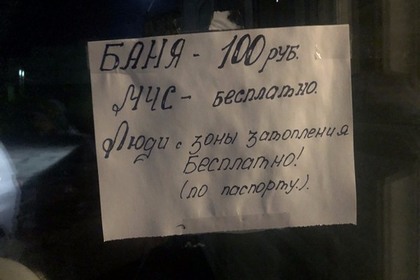 БАНЯ - 100 руб.
МЧС - бесплатно.
Люди с зоны затопления
Бесплатно!
(по паспорту.).